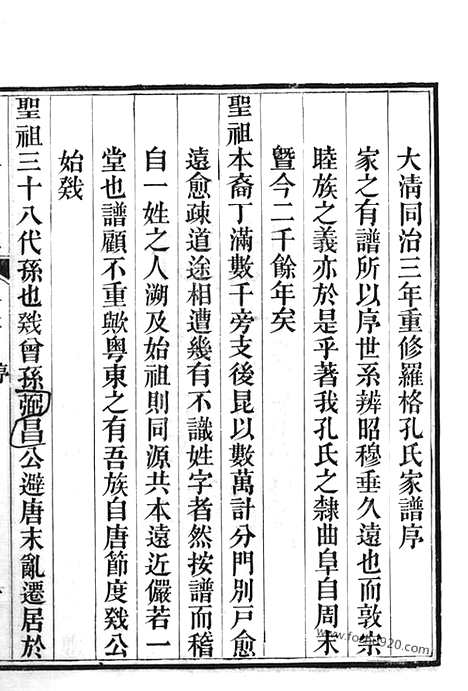 大清同治三年重修羅格孔氏家譜序
家之有譜所以序世系辨昭穆垂久遠也而敦宗
睦族之義亦於是乎著我孔氏之隸曲阜自周末
曁今二千餘年矣
聖祖本裔丁滿數千旁支後昆以數萬計分門別戸愈
遠愈疎道途相遭幾有不識姓字者然按譜而稽
自一姓之人溯及始祖則同源共本遠近儼若一
堂也譜顧不重歟粵東之有吾族自唐節度戣公
始戣
聖祖三十八代孫也戣曾孫昌公避唐末亂遷居於
序